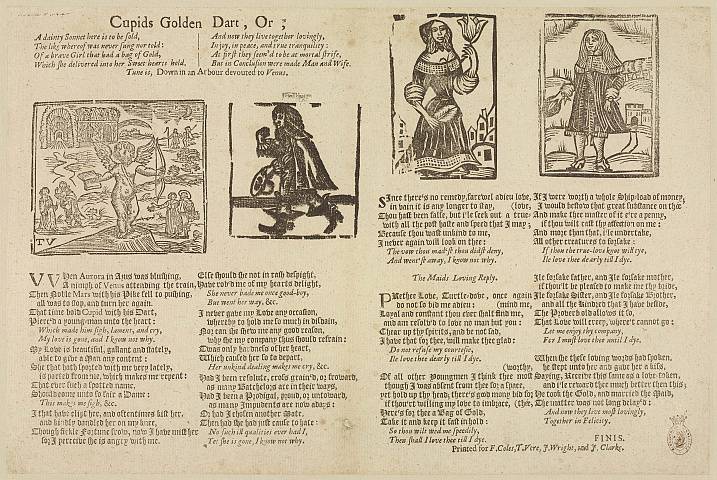 Cupids Golden Dart, Or;
A dainty Sonnet here is to be sold,
The like whereof was never sung nor told:
Of a brave Girl that had a bag of Gold,
Which she delivered into her Sweet-hearts hold.
And now they live together lovingly,
In joy, in peace, and true tranquility:
At first they seem'd to be at mortal strife,
But in Conclusion were made Man and Wife.
Tune is, Down in an Arbour devouted to Venus.
TV
WHen Aurora in Azus was blushing,
A nimph of Venus attending the train,
Then Noble Mars with his Pike fell to pushing,
all was to stop, and turn her again.
That time bold Cupid with his Dart,
Pierc'd a young-man unto the heart:
Which made him sigh, lament, and cry,
My love is gone, and I know not why.
My Love is beautiful, gallant and stately,
able to give a Man any content:
She that both spotted with me very lately,
is parted from me, which makes me repent:
That ever such a spotted name,
Should come unto so fair a Dame:
This makes me sigh, &c.
I that have clipt her, and oftentimes kist her,
and kindly dandled her on my knee,
Though fickle Fortune frown, now I have mist her
so; I perceive she is angry with me.
Else should she not in rash despight,
Have rob'd me of my hearts delight,
She never bade me once good-boy,
But went her way, &c.
I never gave my Love any occasion,
whereby to hold me so much in disdain,
Nor can she shew me any good reason,
why she my company thus should refrain:
Twas only hardness of her heart,
Which caused her so to depart,
Her unkind dealing makes me cry, &c.
Had I been resolute, cross grain'd, or froward,
as many Batchelors are in their ways,
Had I been a Prodigal, proud, or untoward,
as many Impudents are now adays:
Or had I chosen another Mate,
Then had she had just cause to hate:
No such ill qualities ever had I,
Yet she is gone, I know not why.
SInce there's no remedy, farewel adieu love,
in vain it is any longer to stay, (love,
Thou hast been false, but i'le seek out a true-
with all the post haste and speed that I may;
Because thou wast unkind to me,
I never again will look on thee:
The vow thou mad'st thou didst deny,
And went'st away, I know not why.
The Maids Loving Reply.
PRethee Love, Turtle-dove, once again
do not so bid me adieu; (mind me,
Loyal and constant thou ever shalt find me,
and am resolv'd to love no man but you:
Chear up thy spirits, and be not sad,
I have that for thee, will make thee glad:
Do not refuse my courtesie,
Ile love thee dearly till I dye.
(worthy,
Of all other Youngmen I think thee most
though I was absent from thee for a space,
yet hold up thy head, there's good many bid for
if thou'rt willing my love to imbrace, (thee,
Here's for thee a Bag of Gold,
Take it and keep it fast in hold:
So thou wilt wed me speedily,
Then shall I love thee till I dye.
If I were worth a whole Ship-load of money,
I would bestow that great substance on thee
And make thee master of it e're a penny,
if thou wilt cast thy affection on me:
And more than that, i'le undertake,
All other creatures to forsake:
If thou the true-love knot will tye,
Ile love thee dearly till I dye.
Ile forsake father, and Ile forsake mother,
if thou'lt be pleased to make me thy bride,
Ile forsake Sister, and Ile forsake Brother,
and all the kindred that I have beside,
The Proverb old allows it so,
That Love will creep, where't cannot go:
Let me enjoy thy company,
For I must love thee until I dye.
When she these loving words had spoken,
he stept unto her and gave her a kiss,
Saying, Receive this same as a love-token,
and i'le reward thee much better then this;
He took thy Gold, and married the Maid,
The matter was not long delay'd:
And now they love most lovingly,
Together in Felicity.
FINIS.
Printed for F. Coles, T. Vere, J. Wright, and J. Clarke.